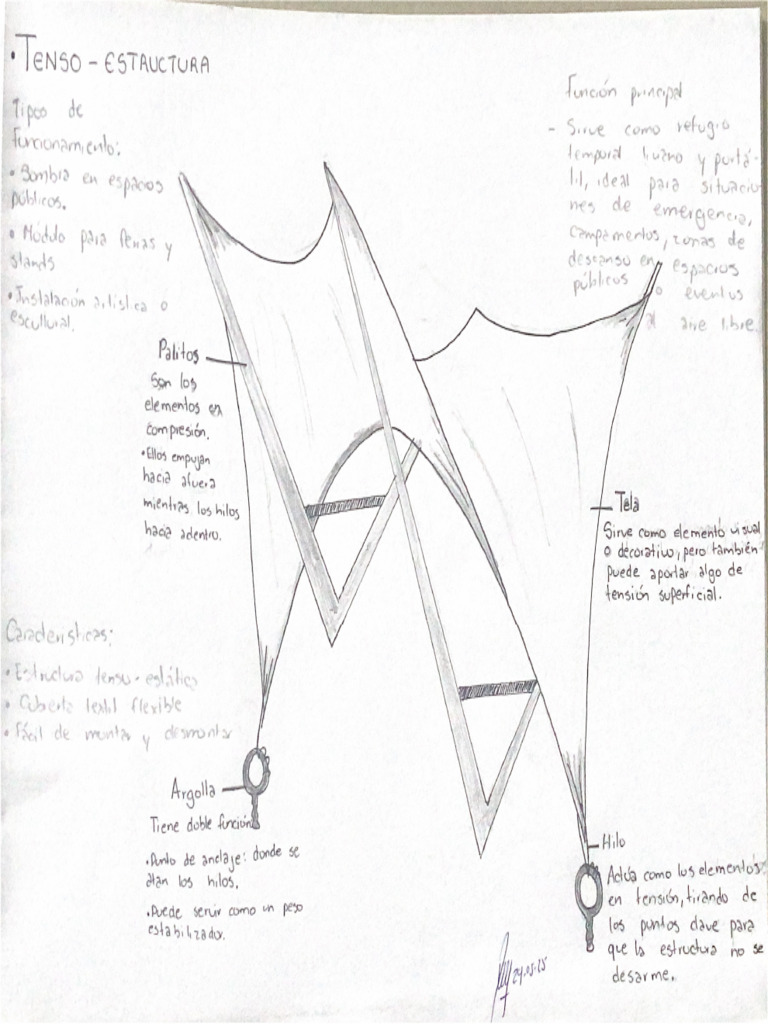 • TENSO - ESTRUCTURA
Tipos de
funcionamiento:
• Sombra en espacios
públicos.
• Móddo para ferias y
stands
• Instalación artística o
escultural.
Función principal
- Sirve como refugio
temporal liviano y portá-
til, ideal para situacio
nes de emergencia,
campamentos, zonas de
descanso en espacios
públicos o eventos
al aire libre.
Palitos
Son los
elementos en
compresión.
• Ellos empujan
hacia afuera
mientras los hilos
hacia adentro.
Tela
Sirve como elemento visual
o decorativo, pero también
puede aportar algo de
tensión superficial.
Características:
• Estructura tenso-estático
• Cubierta textil flexible
• Fácil de montar y desmontar
Argolla
Tiene doble función
• Punto de anclaje: donde se
atan los hilos.
• Puede servir como un peso
estabilizador.
Hilo
Actúa como los elementos
en tensión, tirando de
los puntos clave para
que la estructura no se
desarme.
24.05.25